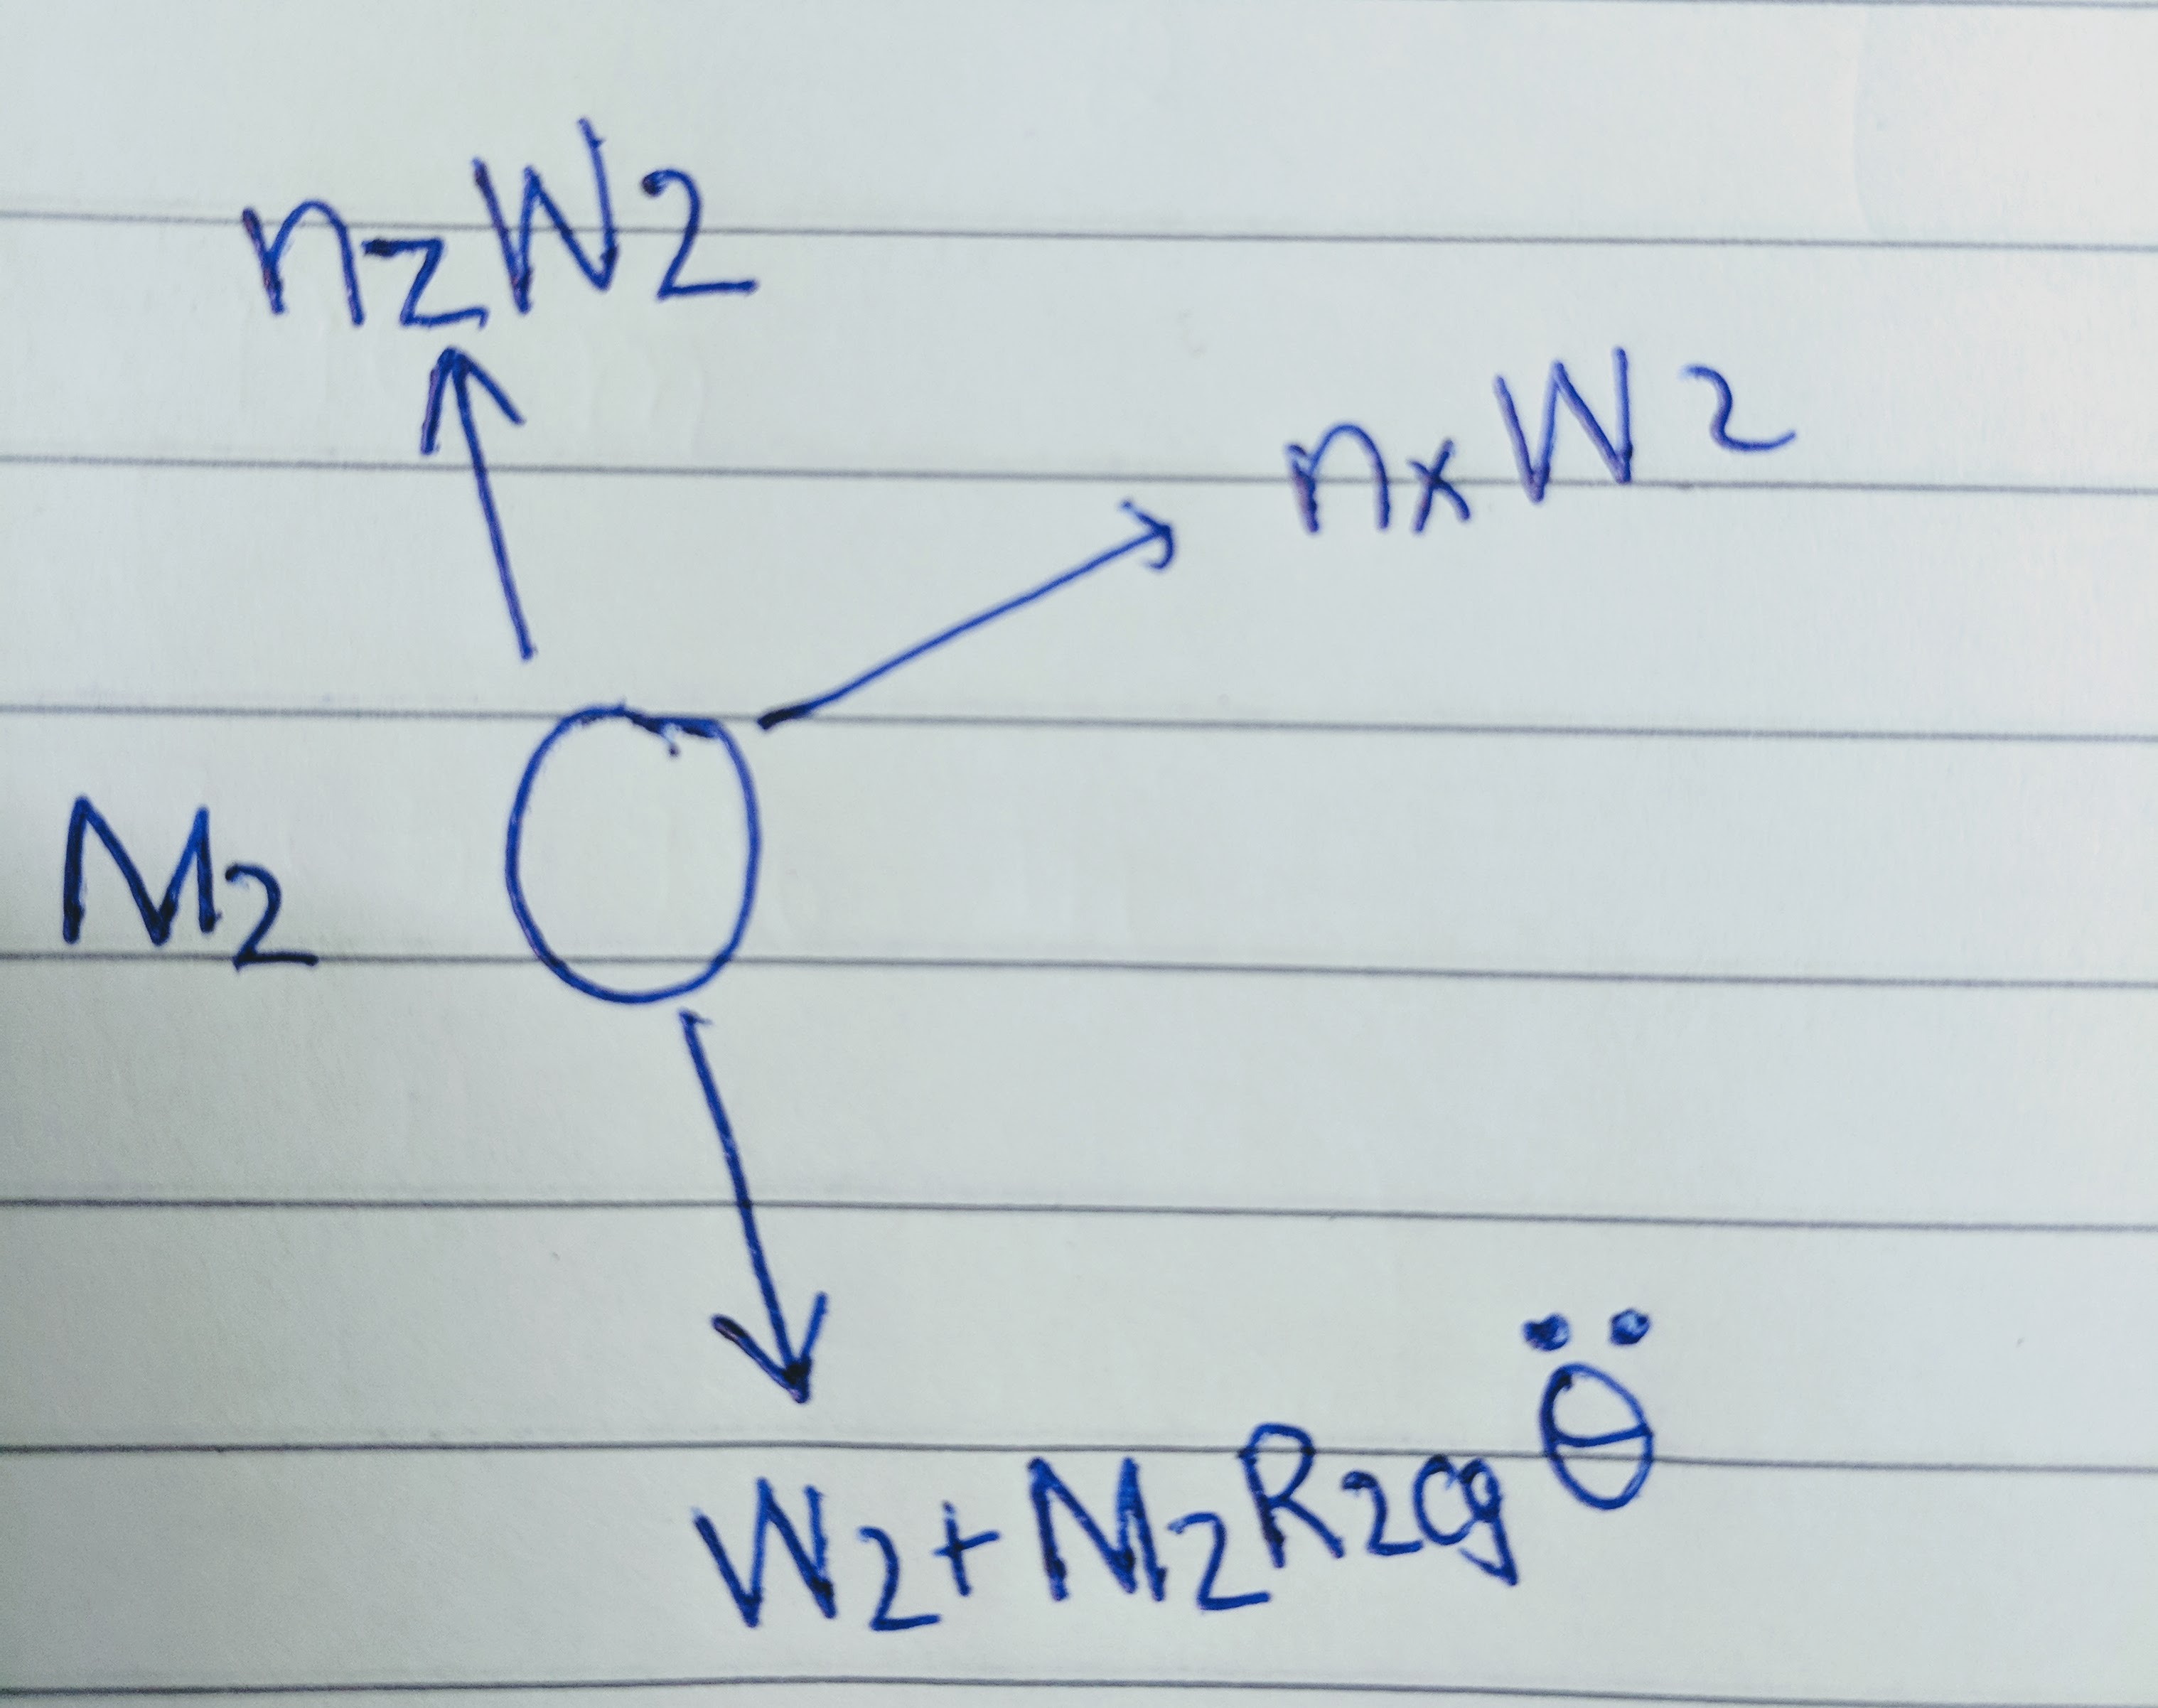 nzW2
nxW2
M2
W2+M2R2cgθ̈